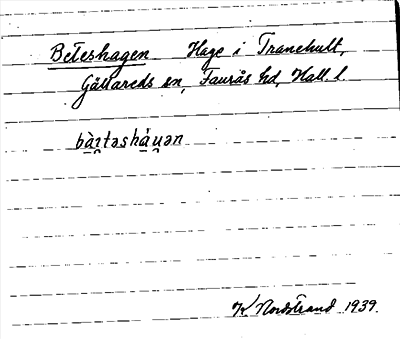 Beteshagen Hage i Tranehult,
Gällareds sn, Faurås hd, Hall. l.
bàɪ̯təshá̱ɥən
K Nordstrand 1939.